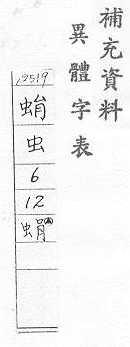 補充資料
異體字表
12519
蛕
虫
6
12